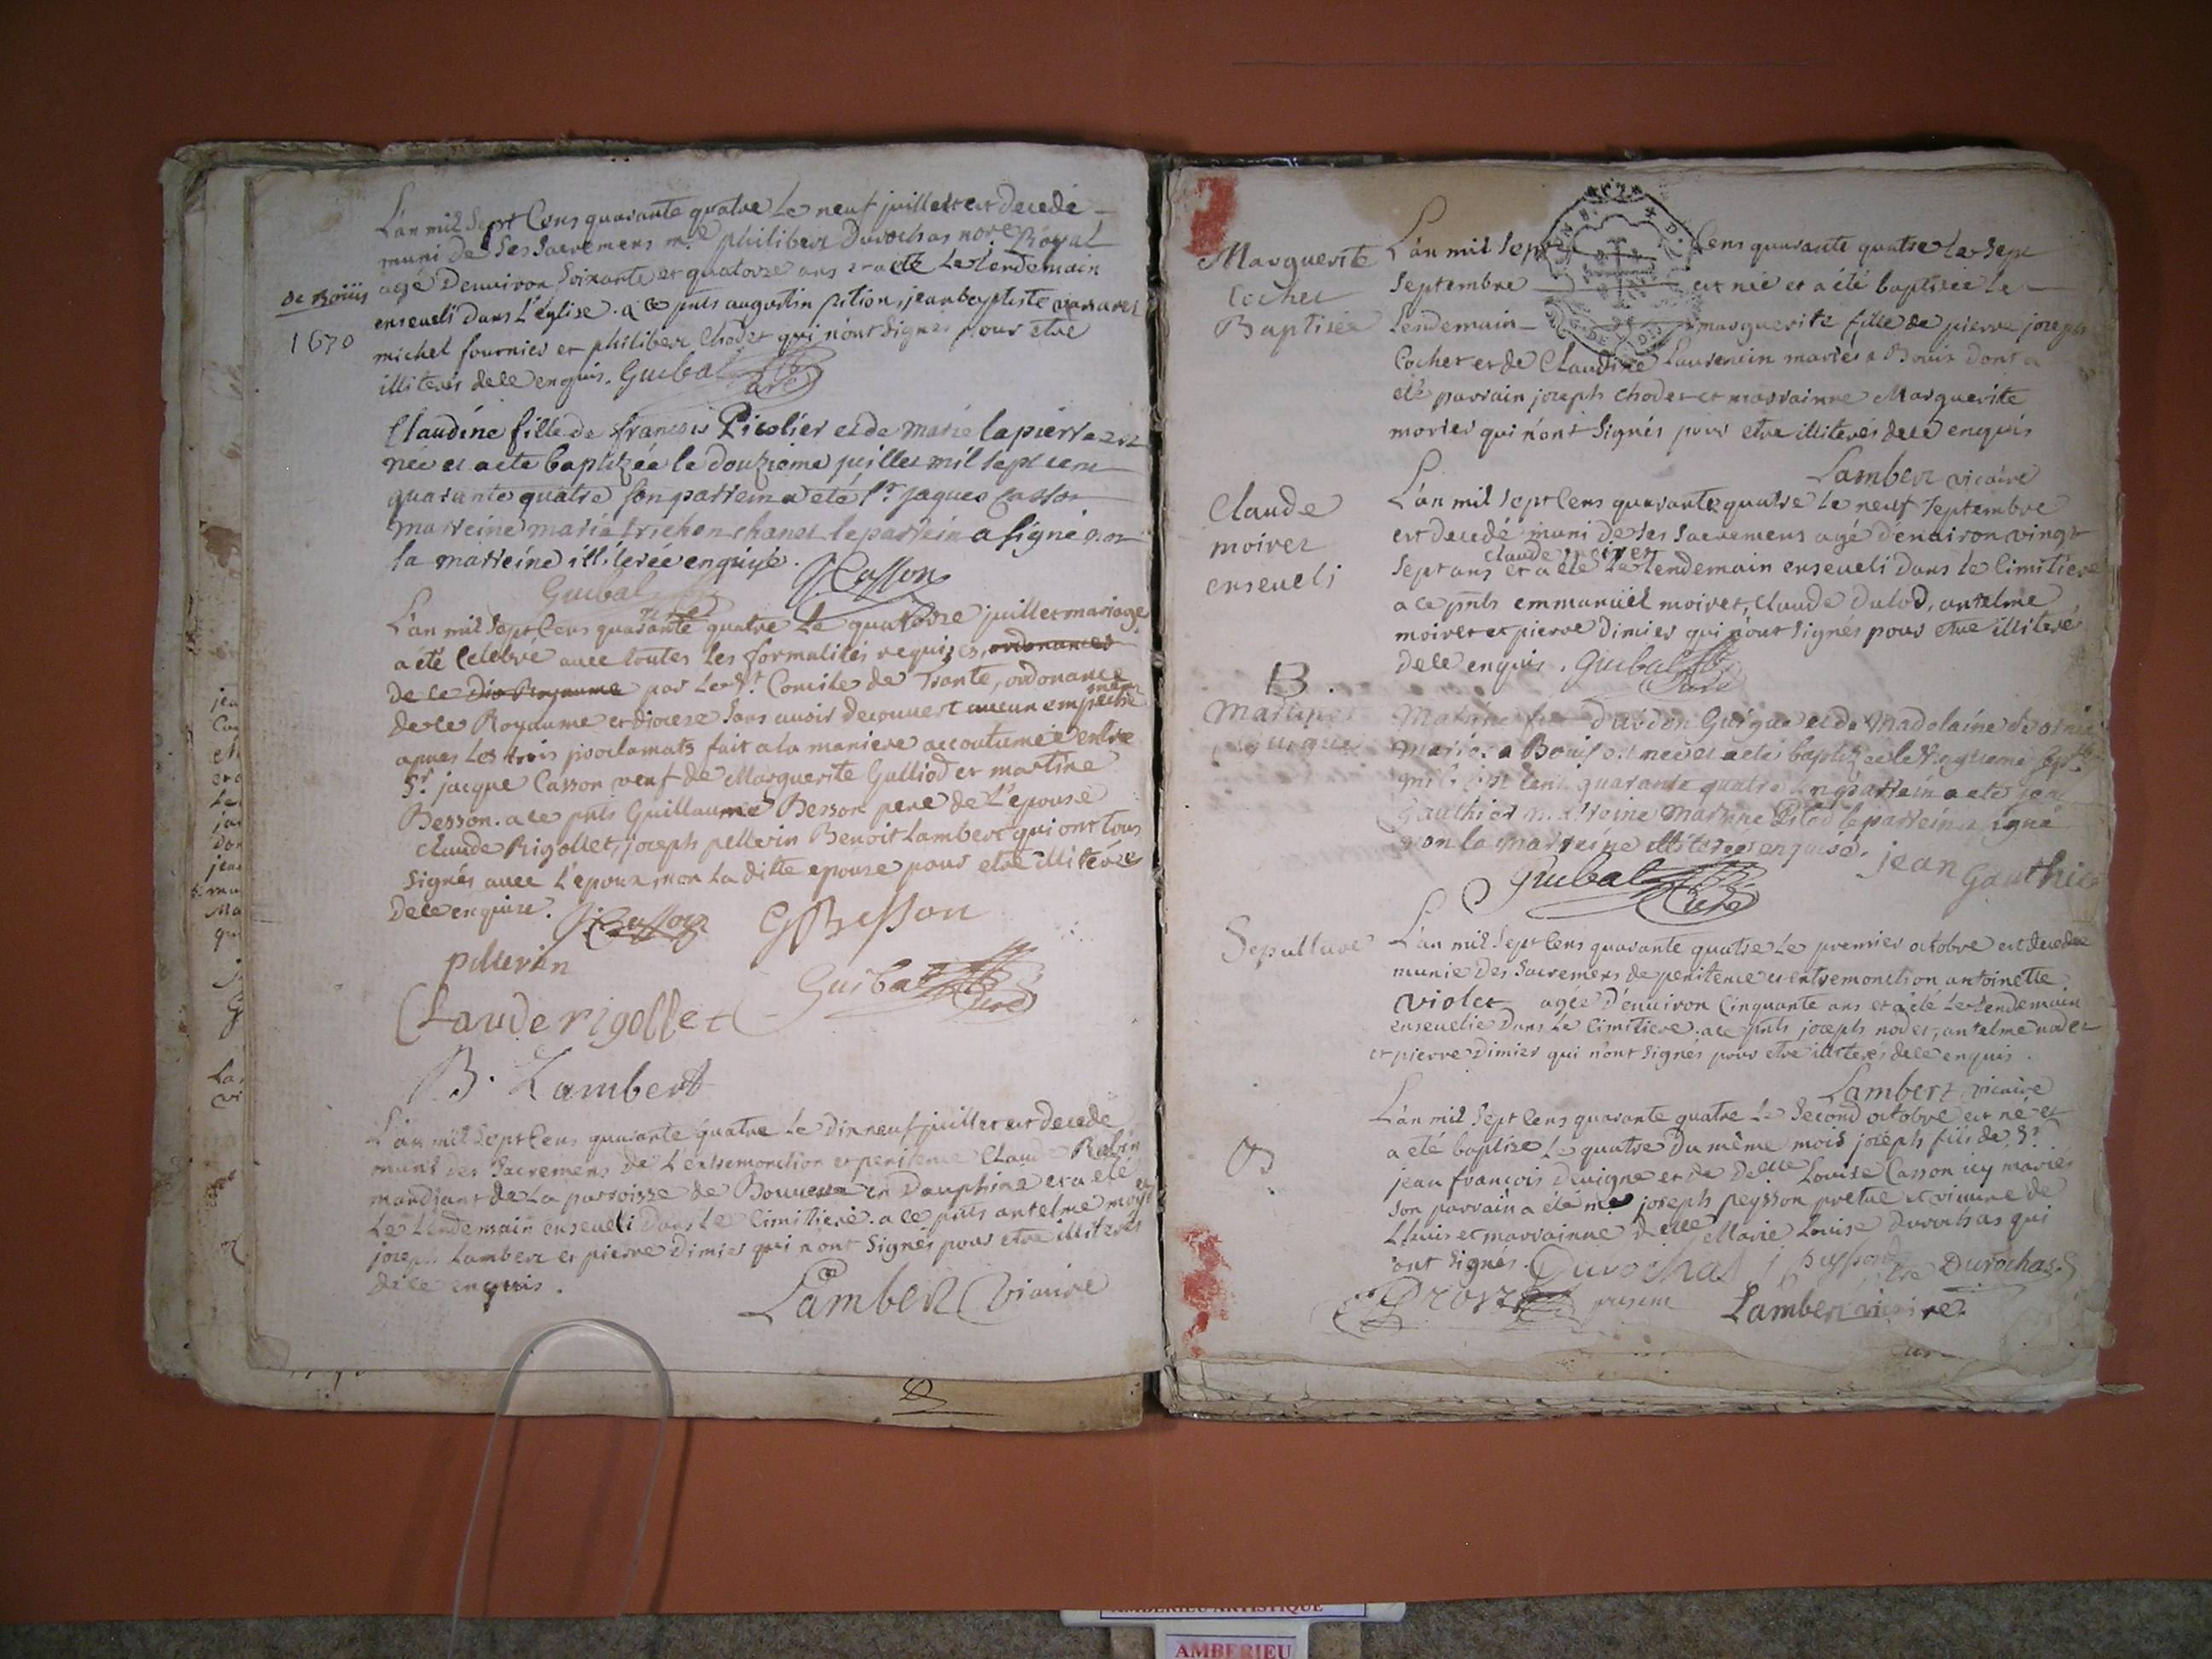 L'an mil Sept Cens quarante quatre Le neuf juillet est decedé
muni de Ses Sacremens me philibert Durochas nore Royal
agé Denviron Soixante et quatorze ans et a été Le lendemain
enseveli dans L'église. a ce pnts augustin pition, jean baptiste
michel fournier et philibert Chodet qui n'ont Signés pour etre
illiterés de ce enquis. Guibal Curé
De Boüis
1670
Claudine fille de françois Picolier et de marie lapierre est
née et a ete baptizée le douzieme juillet mil sept cent
quarante quatre son parrein a eté Sr jaques Casson
marreine marie trichon chanel le parrein a signé non
la marreine illiterée enquise. J Casson
Guibal Curé
L'an mil Sept Cens quarante quatre Le quatorze juillet mariage
a été Celebré avec toutes les formalités requises, ordonances
de ce Royaume par Le St Concile de Trante, ordonance
de ce Royaume et diocese Sans avoir decouvert aucun empeche
ment
apres Les trois proclamats fait a la maniere accoutumée entre
Sr jacque Casson veuf de Marguerite Galliod et martine
Besson. a ce pnts Guillaume Besson pere de L'epouse
Claude Rigollet, joseph pellerin Benoit Lambert qui ont tous
Signés avec L'epoux, non La ditte epouse pour etre illiterée
de ce enquise. J Casson G Besson
pillerin
Guibal Curé
Claude rigollet
B. Lambert
L'an mil Sept Cens quarante quatre Le dix neuf juillet est decedé
muni des Sacremens de L'extremonction et penitence Claude Robin
mandiant de La parroisse de Bouvesse en Dauphiné et a été
Le Lendemain enseveli dans Le Cimitiere. a ce pnts antelme
joseph Lambert et pierre Dimier qui n'ont Signés pour etre illiterés
de ce enquis.
Lambert Vicaire
Marguerite
Cochet
Baptisée
L'an mil Sept Cens quarante quatre Le Sept
Septembre est née et a été baptisée Le
Lendemain marguerite fille de pierre joseph
Cochet et de Claudine Laurencin mariés a Bouis dont a
été parrain joseph Chodet et marrainne Marguerite
morier qui n'ont Signés pour etre illiterés de ce enquis
Lambert vicaire
Claude
moiret
enseveli
L'an mil Sept Cens quarante quatre Le neuf Septembre
est decedé muni de Ses Sacremens agé d'environ vingt
Claude moiret
Sept ans et a été Le Lendemain enseveli dans Le Cimitiere
a ce pnts emmanuel moiret, Claude Dulod, antelme
moiret et pierre Dimier qui n'ont Signés pour etre illiterés
de ce enquis. Guibal Curé
B.
Martine
Guigue
Martine fille d'                Guigue et de Madelaine
mariés a Bouis est neë et a ete baptizée le vingtieme
mil sept cent quarante quatre son parrein a eté jean
Gauthier marreine Martine Pilod le parrein a signé
non la marreine illiterée enquise. jean Gauthier
Guibal Curé
Sepulture
L'an mil Sept Cens quarante quatre Le premier octobre est decedée
munie des Sacremens de penitence et extremonction antoinette
Violet agée d'environ Cinquante ans et a été Le Lendemain
ensevelie dans Le Cimitiere. a ce pnts joseph nodet, antelme nodet
et pierre Dimier qui n'ont Signés pour etre illiterés de ce enquis.
Lambert vicaire
B
L'an mil Sept Cens quarante quatre Le Second octobre est né et
a été baptisé Le quatre du même mois joseph fils de Sr
jean françois Devigne et de Delle Louise Casson icy mariés
Son parrain a été me joseph peysson pretre et vicaire de
Lhuis et marrainne Delle Marie Louise Durochas qui
ont Signés. Durochas j peysson ptre Durochas
present Lambert vicaire.
AMBERIEU ARTISTIQUE
AMBERIEU